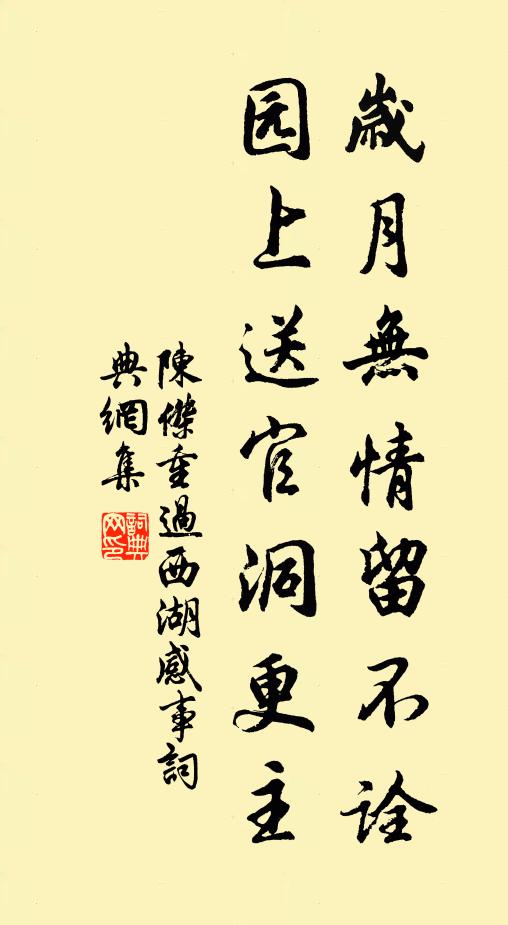 歲月無情留不詮
园上送官洞更主
陳傑重過西湖感事詞
典網集
詞典
网印